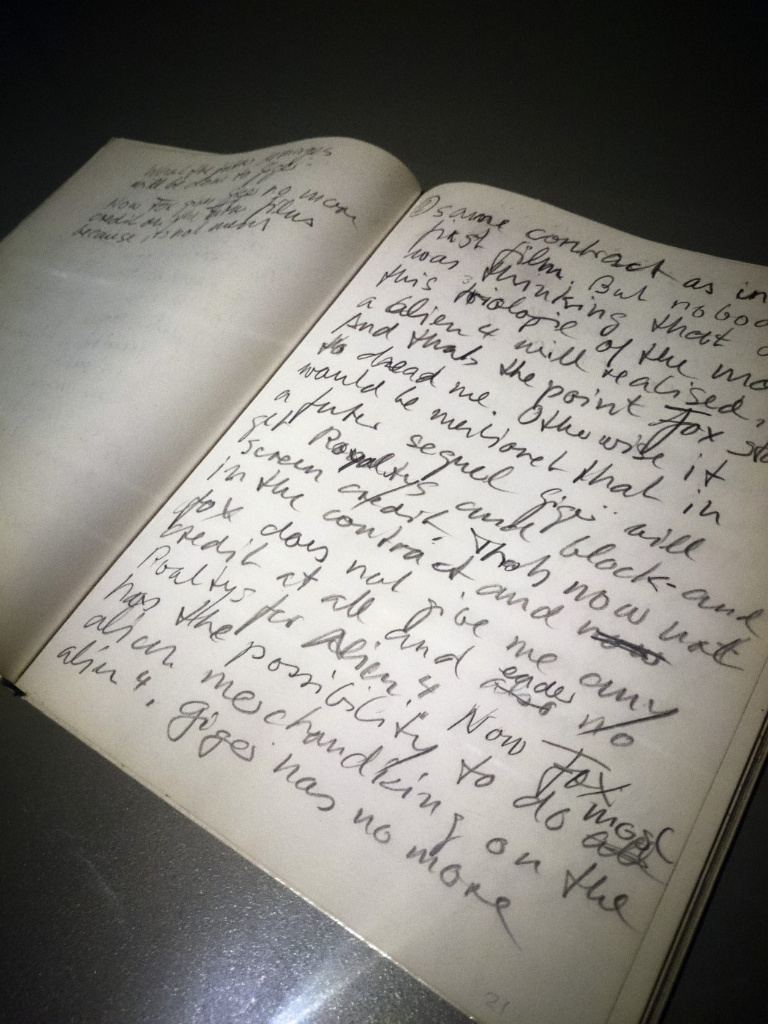 will be done to giger.
Now Fox give giger no more
credit on the films
because it's not
② same contract as in
first film. But nobod
was thinking that
this triologie of the mo
a alien 4 will realised,
And thats the point Fox sta
to dread me. Otherwise it
would be mentionet that in
a futer sequel giger will
get Royaltys and block-and
screen credit. Thats now not
in the contract and now
fox does not give me any
credit at all and also no
Roaltys for Alien 4. Now Fox
has the possibility to do most
alien merchandking on the
alien 4. Giger has no more
21